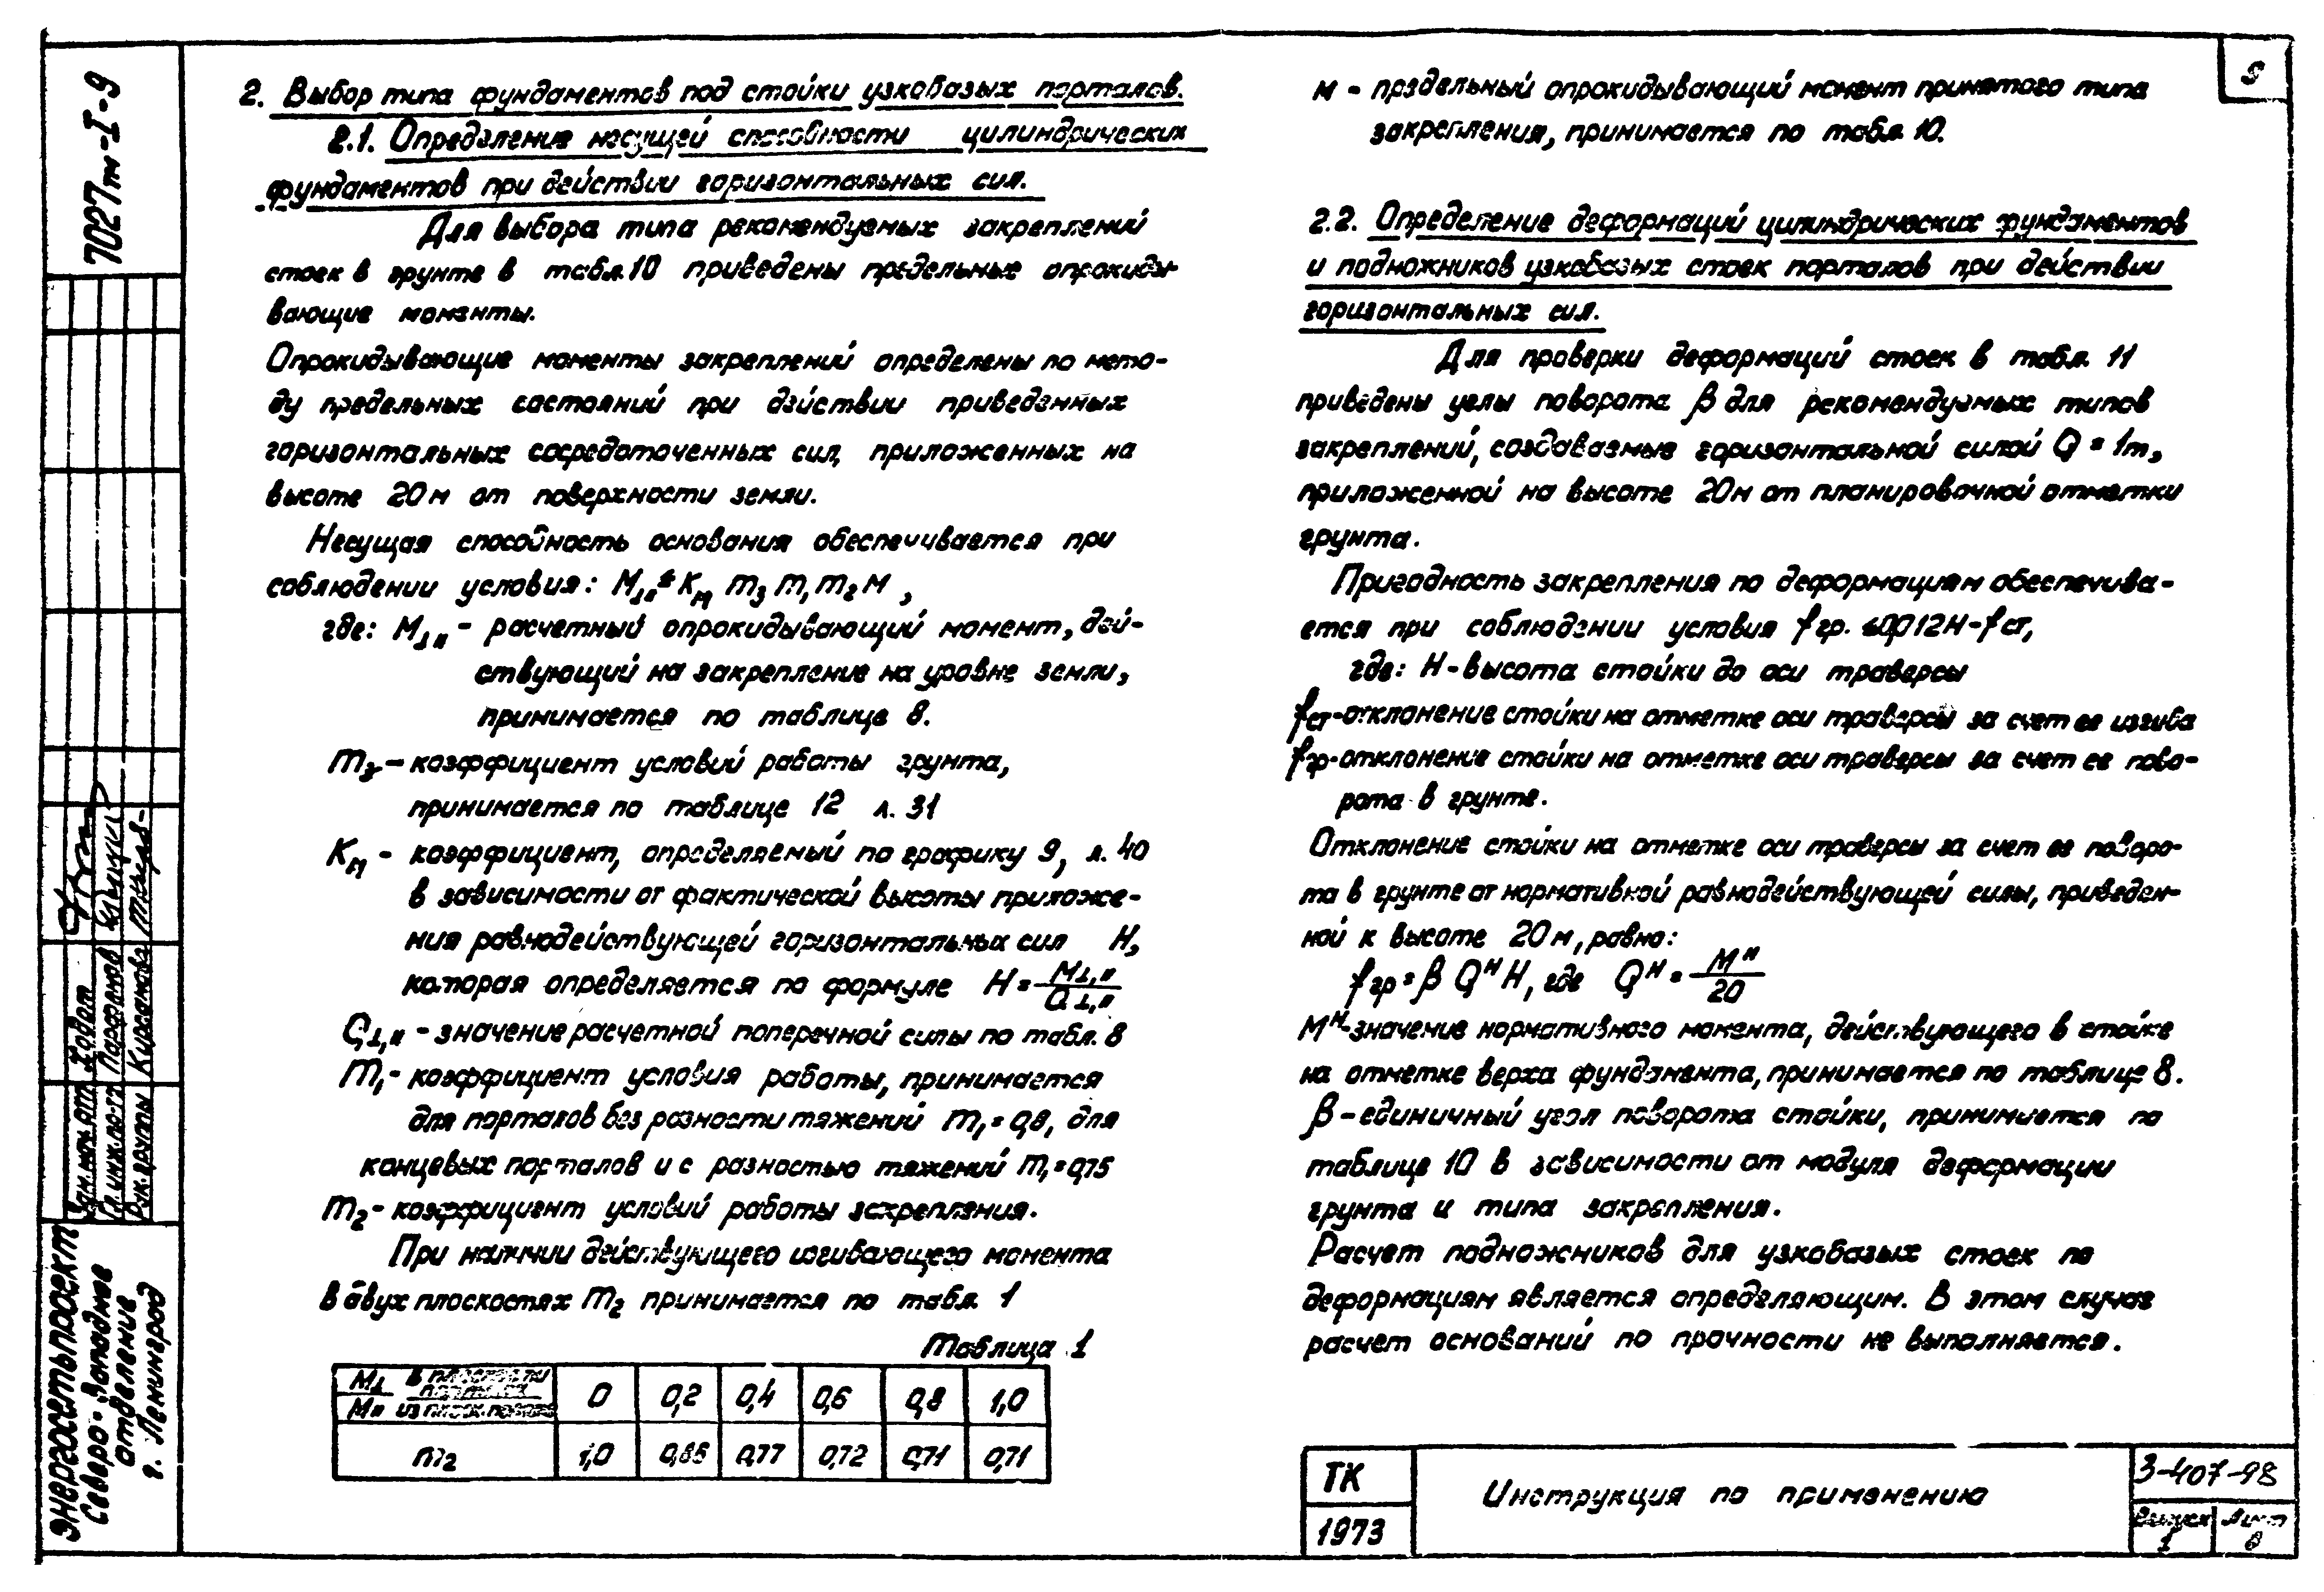 9
7027тм-I-9
2. Выбор типа фундаментов под стойки узкобазых порталов.
2.1. Определение несущей способности цилиндрических
фундаментов при действии горизонтальных сил.
Для выбора типа рекомендуемых закреплений
стоек в грунте в табл.10 приведены предельные опрокиды
вающие моменты.
Опрокидывающие моменты закреплений определены по мето-
ду предельных состояний при действии приведенных
горизонтальных сосредоточенных сил, приложенных на
высоте 20м от поверхности земли.
Несущая способность основания обеспечивается при
соблюдении условия: M⊥,ıı ≤ Kм m3 m1 m2 M,
где: M⊥ıı - расчетный опрокидывающий момент, дей-
ствующий на закрепление на уровне земли,
принимается по таблице 8.
m3 - коэффициент условий работы грунта,
принимается по таблице 12 л. 31
Kм - коэффициент, определяемый по графику 9, л. 40
в зависимости от фактической высоты приложе-
ния равнодействующей горизонтальных сил H,
которая определяется по формуле H = M⊥,ıı / Q⊥,ıı
Q⊥,ıı - значение расчетной поперечной силы по табл. 8
m1 - коэффициент условия работы, принимается
для порталов без разности тяжений m1 = 0,8, для
концевых порталов и с разностью тяжений m1 = 0,75
m2 - коэффициент условий работы закрепления.
При наличии действующего изгибающего момента
в двух плоскостях m2 принимается по табл. 1
Таблица 1
M⊥ в плоскости портала / Mıı из плоск. портала 0 0,2 0,4 0,6 0,8 1,0
m2 1,0 0,85 0,77 0,72 0,71 0,71
м - предельный опрокидывающий момент принятого типа
закрепления, принимается по табл. 10.
2.2. Определение деформаций цилиндрических фундаментов
и подножников узкобазых стоек порталов при действии
горизонтальных сил.
Для проверки деформаций стоек в табл. 11
приведены углы поворота β для рекомендуемых типов
закреплений, создаваемые горизонтальной силой Q = 1т,
приложенной на высоте 20м от планировочной отметки
грунта.
Пригодность закрепления по деформациям обеспечива-
ется при соблюдении условия fгр. ≤ 0,012H - fст,
где: H - высота стойки до оси траверсы
fст - отклонение стойки на отметке оси траверсы за счет ее изгиба
fгр - отклонение стойки на отметке оси траверсы за счет ее пово-
рота в грунте.
Отклонение стойки на отметке оси траверсы за счет ее поворо-
та в грунте от нормативной равнодействующей силы, приведен-
ной к высоте 20м, равно:
fгр = β Qᴴ H, где Qᴴ = Mᴴ / 20
Mᴴ - значение нормативного момента, действующего в стойке
на отметке верха фундамента, принимается по таблице 8.
β - единичный угол поворота стойки, принимается по
таблице 10 в зависимости от модуля деформации
грунта и типа закрепления.
Расчет подножников для узкобазых стоек по
деформациям является определяющим. В этом случае
расчет оснований по прочности не выполняется.
Зам.нач.отд. Ходот
Гл.инж.пр-та Парфенов
Рук.группы Кирсанова
Энергосетьпроект
Северо-Западное
отделение
г. Ленинград
ТК
1973
Инструкция по применению
3-407-98
Выпуск Лист
1 8